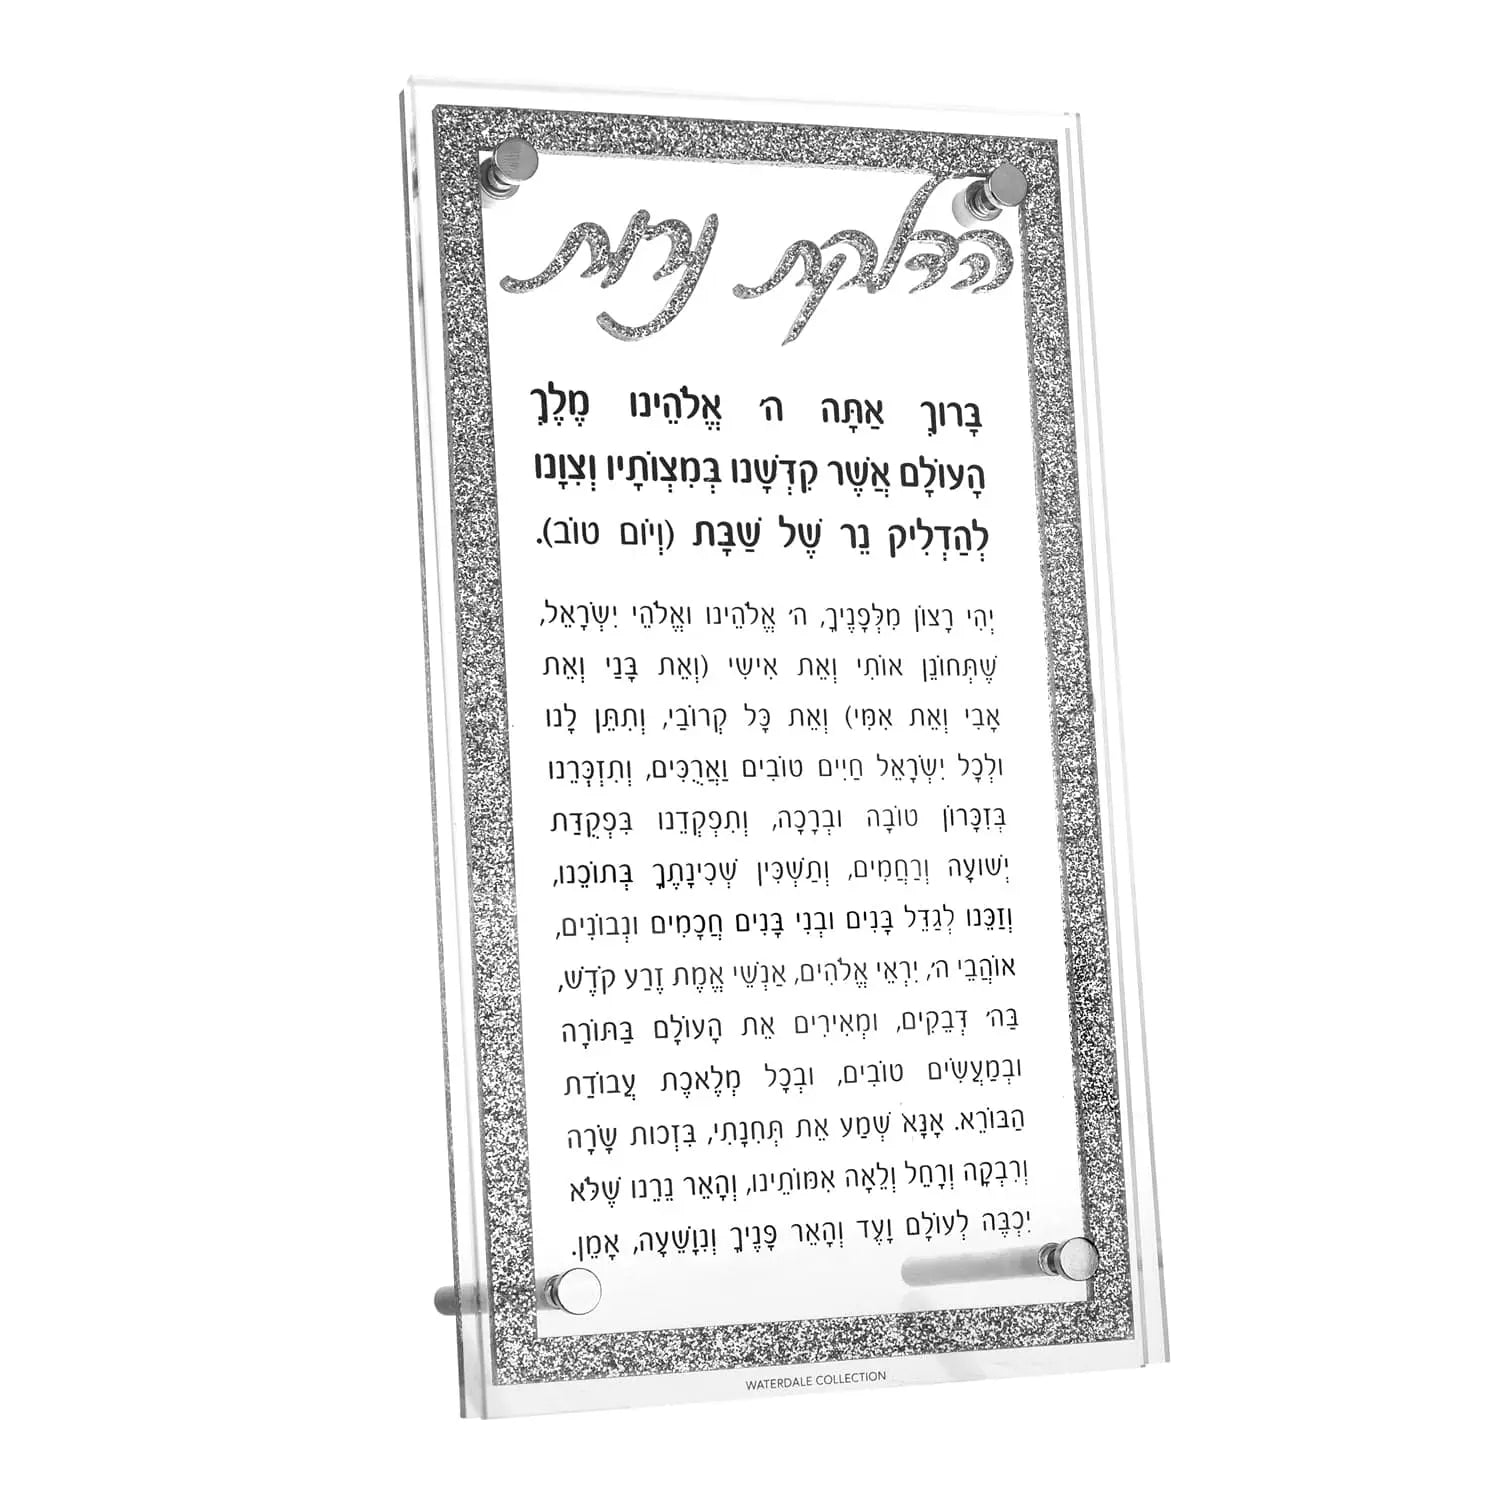 הדלקת נרות
בָּרוּךְ אַתָּה ה׳ אֱלֹהֵינוּ מֶלֶךְ
הָעוֹלָם אֲשֶׁר קִדְּשָׁנוּ בְּמִצְוֹתָיו וְצִוָּנוּ
לְהַדְלִיק נֵר שֶׁל שַׁבָּת (וְיוֹם טוֹב).
יְהִי רָצוֹן מִלְּפָנֶיךָ, ה׳ אֱלֹהֵינוּ וֵאלֹהֵי יִשְׂרָאֵל,
שֶׁתְּחוֹנֵן אוֹתִי וְאֵת אִישִׁי (וְאֵת בָּנַי וְאֵת
אָבִי וְאֵת אִמִּי) וְאֵת כָּל קְרוֹבַי, וְתִתֵּן לָנוּ
וּלְכָל יִשְׂרָאֵל חַיִּים טוֹבִים וַאֲרֻכִּים, וְתִזְכְּרֵנוּ
בְּזִכְרוֹן טוֹבָה וּבְרָכָה, וְתִפְקְדֵנוּ בִּפְקֻדַּת
יְשׁוּעָה וְרַחֲמִים, וְתַשְׁכִּין שְׁכִינָתְךָ בְּתוֹכֵנוּ,
וְזַכֵּנוּ לְגַדֵּל בָּנִים וּבְנֵי בָנִים חֲכָמִים וּנְבוֹנִים,
אוֹהֲבֵי ה׳, יִרְאֵי אֱלֹהִים, אַנְשֵׁי אֱמֶת זֶרַע קֹדֶשׁ,
בַּה׳ דְּבֵקִים, וּמְאִירִים אֵת הָעוֹלָם בַּתּוֹרָה
וּבְמַעֲשִׂים טוֹבִים, וּבְכָל מְלֶאכֶת עֲבוֹדַת
הַבּוֹרֵא. אָנָּא שְׁמַע אֵת תְּחִנָּתִי, בִּזְכוּת שָׂרָה
וְרִבְקָה וְרָחֵל וְלֵאָה אִמּוֹתֵינוּ, וְהָאֵר נֵרֵנוּ שֶׁלֹּא
יִכְבֶּה לְעוֹלָם וָעֶד וְהָאֵר פָּנֶיךָ וְנִוָּשֵׁעָה, אָמֵן.
WATERDALE COLLECTION